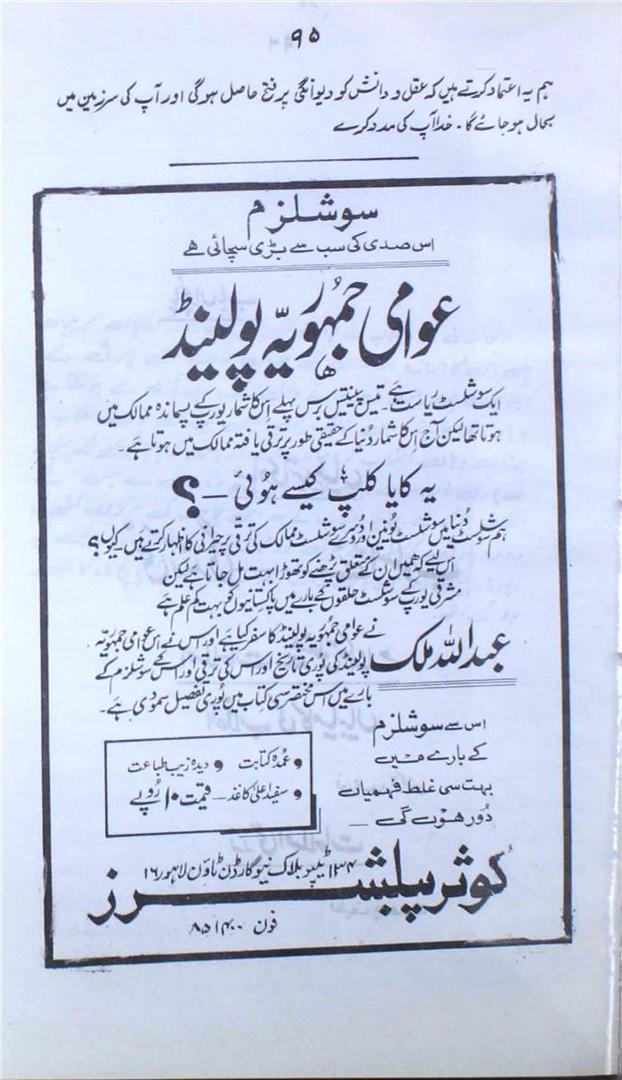 ۹۵
ہم یہ اعتماد کرتے ہیں کہ عقل و دانش کو دیوانگی پر فتح حاصل ہوگی اور آپ کی سرزمین میں
بحال ہو جائے گا۔ خدا آپ کی مدد کرے
سوشلزم
اس صدی کی سب سے بڑی سچائی ہے
عوامی جمہوریہ پولینڈ
ایک سوشلسٹ ریاست ہے۔ تیس پینتیس برس پہلے اس کا شمار یورپ کے پسماندہ ممالک میں
ہوتا تھا لیکن آج اس کا شمار دنیا کے حقیقی طور پر ترقی یافتہ ممالک میں ہوتا ہے۔
یہ کایا کلپ کیسے ہوئی —؟
ہم سوشلسٹ دنیا میں سوشلسٹ یونین اور دوسرے سوشلسٹ ممالک کی ترقی پر حیرانی کا اظہار کرتے ہیں۔ کیوں؟
اس لیے کہ ہمیں ان کے متعلق پڑھنے کو تھوڑا بہت مل جاتا ہے لیکن
مشرقی یورپ کے سوشلسٹ حلقوں کے بارے میں پاکستانیوں کو بہت کم علم ہے
عبداللہ ملک نے عوامی جمہوریہ پولینڈ کا سفر کیا ہے اور اس نے اس عوامی جمہوریہ
پولینڈ کی پوری تاریخ اور اس کی ترقی اور اس کے سوشلزم کے
بارے میں اس مختصر سی کتاب میں پوری تفصیل سمو دی ہے۔
اس سے سوشلزم
کے بارے میں
بہت سی غلط فہمیاں
دور ہوں گی —
و عمدہ کتابت و دیدہ زیب طباعت
و سفید اعلیٰ کاغذ — قیمت ۱۰ روپے
کوثر پبلشرز
۱۳۴ ٹیپو بلاک نیو گارڈن ٹاؤن لاہور ۱۶
فون